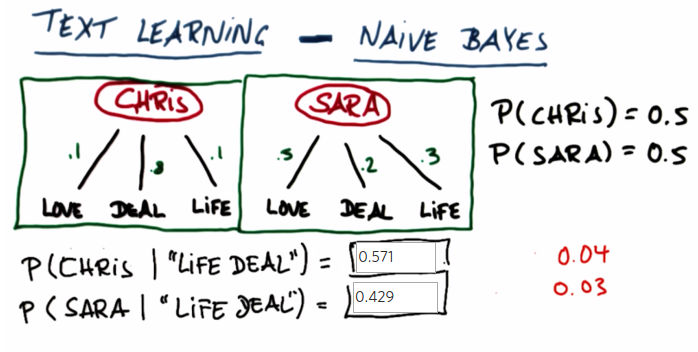 TEXT LEARNING — NAIVE BAYES
CHRIS
.1 .8 .1
LOVE DEAL LIFE
SARA
.5 .2 .3
LOVE DEAL LIFE
P(CHRIS) = 0.5
P(SARA) = 0.5
P(CHRIS | "LIFE DEAL") = 0.571 0.04
P(SARA | "LIFE DEAL") = 0.429 0.03